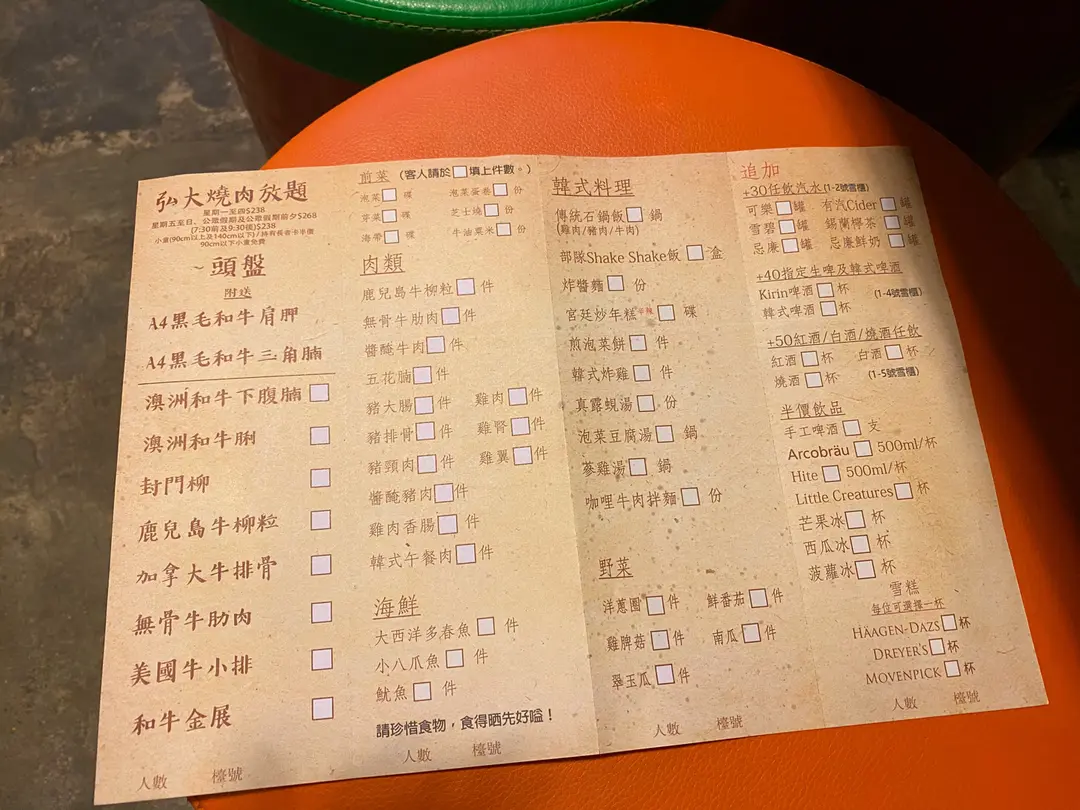 弘大燒肉放題
星期一至四$238
星期五至日、公眾假期及公眾假期前夕$268
(7:30前及9:30後)$238
小童(90cm以上及140cm以下)/持有長者卡半價
90cm以下小童免費
~頭盤
附送
A4黑毛和牛肩胛
A4黑毛和牛三角腩
澳洲和牛下腹腩
澳洲和牛脷
封門柳
鹿兒島牛柳粒
加拿大牛排骨
無骨牛肋肉
美國牛小排
和牛金展
人數 檯號
前菜 (客人請於□填上件數。)
泡菜 碟 泡菜蛋卷 份
芽菜 碟 芝士燒 份
海帶 碟 牛油粟米 份
肉類
鹿兒島牛柳粒 件
無骨牛肋肉 件
醬醃牛肉 件
五花腩 件
豬大腸 件 雞肉 件
豬排骨 件 雞腎 件
豬頸肉 件 雞翼 件
醬醃豬肉 件
雞肉香腸 件
韓式午餐肉 件
海鮮
大西洋多春魚 件
小八爪魚 件
魷魚 件
請珍惜食物，食得晒先好嗌！
人數 檯號
韓式料理
傳統石鍋飯 鍋
(雞肉/豬肉/牛肉)
部隊Shake Shake飯 盒
炸醬麵 份
宮廷炒年糕辛辣 碟
煎泡菜餅 件
韓式炸雞 件
真露蜆湯 份
泡菜豆腐湯 鍋
蔘雞湯 鍋
咖哩牛肉拌麵 份
野菜
洋蔥圈 件 鮮番茄 件
雞脾菇 件 南瓜 件
翠玉瓜 件
人數 檯號
追加
+30任飲汽水(1-2號雪櫃)
可樂 罐 有汽Cider 罐
雪碧 罐 錫蘭檸茶 罐
忌廉 罐 忌廉鮮奶 罐
+40指定生啤及韓式啤酒
Kirin啤酒 杯 (1-4號雪櫃)
韓式啤酒 杯
+50紅酒/白酒/燒酒任飲
紅酒 杯 白酒 杯
燒酒 杯 (1-5號雪櫃)
半價飲品
手工啤酒 支
Arcobräu 500ml/杯
Hite 500ml/杯
Little Creatures 杯
芒果冰 杯
西瓜冰 杯
菠蘿冰 杯
雪糕
每位可選擇一杯
HÄAGEN-DAZS 杯
DREYER'S 杯
MOVENPICK 杯
人數 檯號